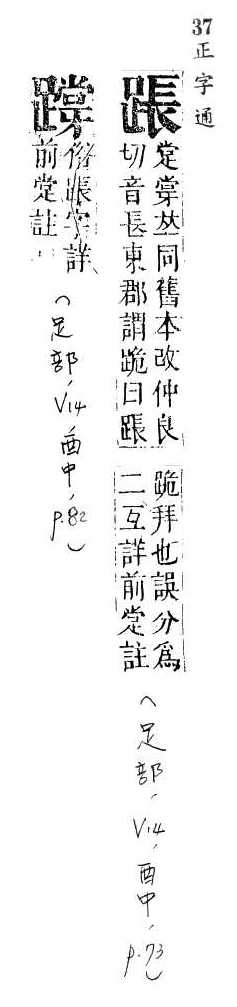 37 正字通
䠆
𠀤同舊本改仲良
切音長東郡謂跪曰䠆
跪拜也誤分爲
二互詳前註
(足部, V14, 酉中, p.73)
俗䠆字詳
前註
(足部, V14, 酉中, p.82)